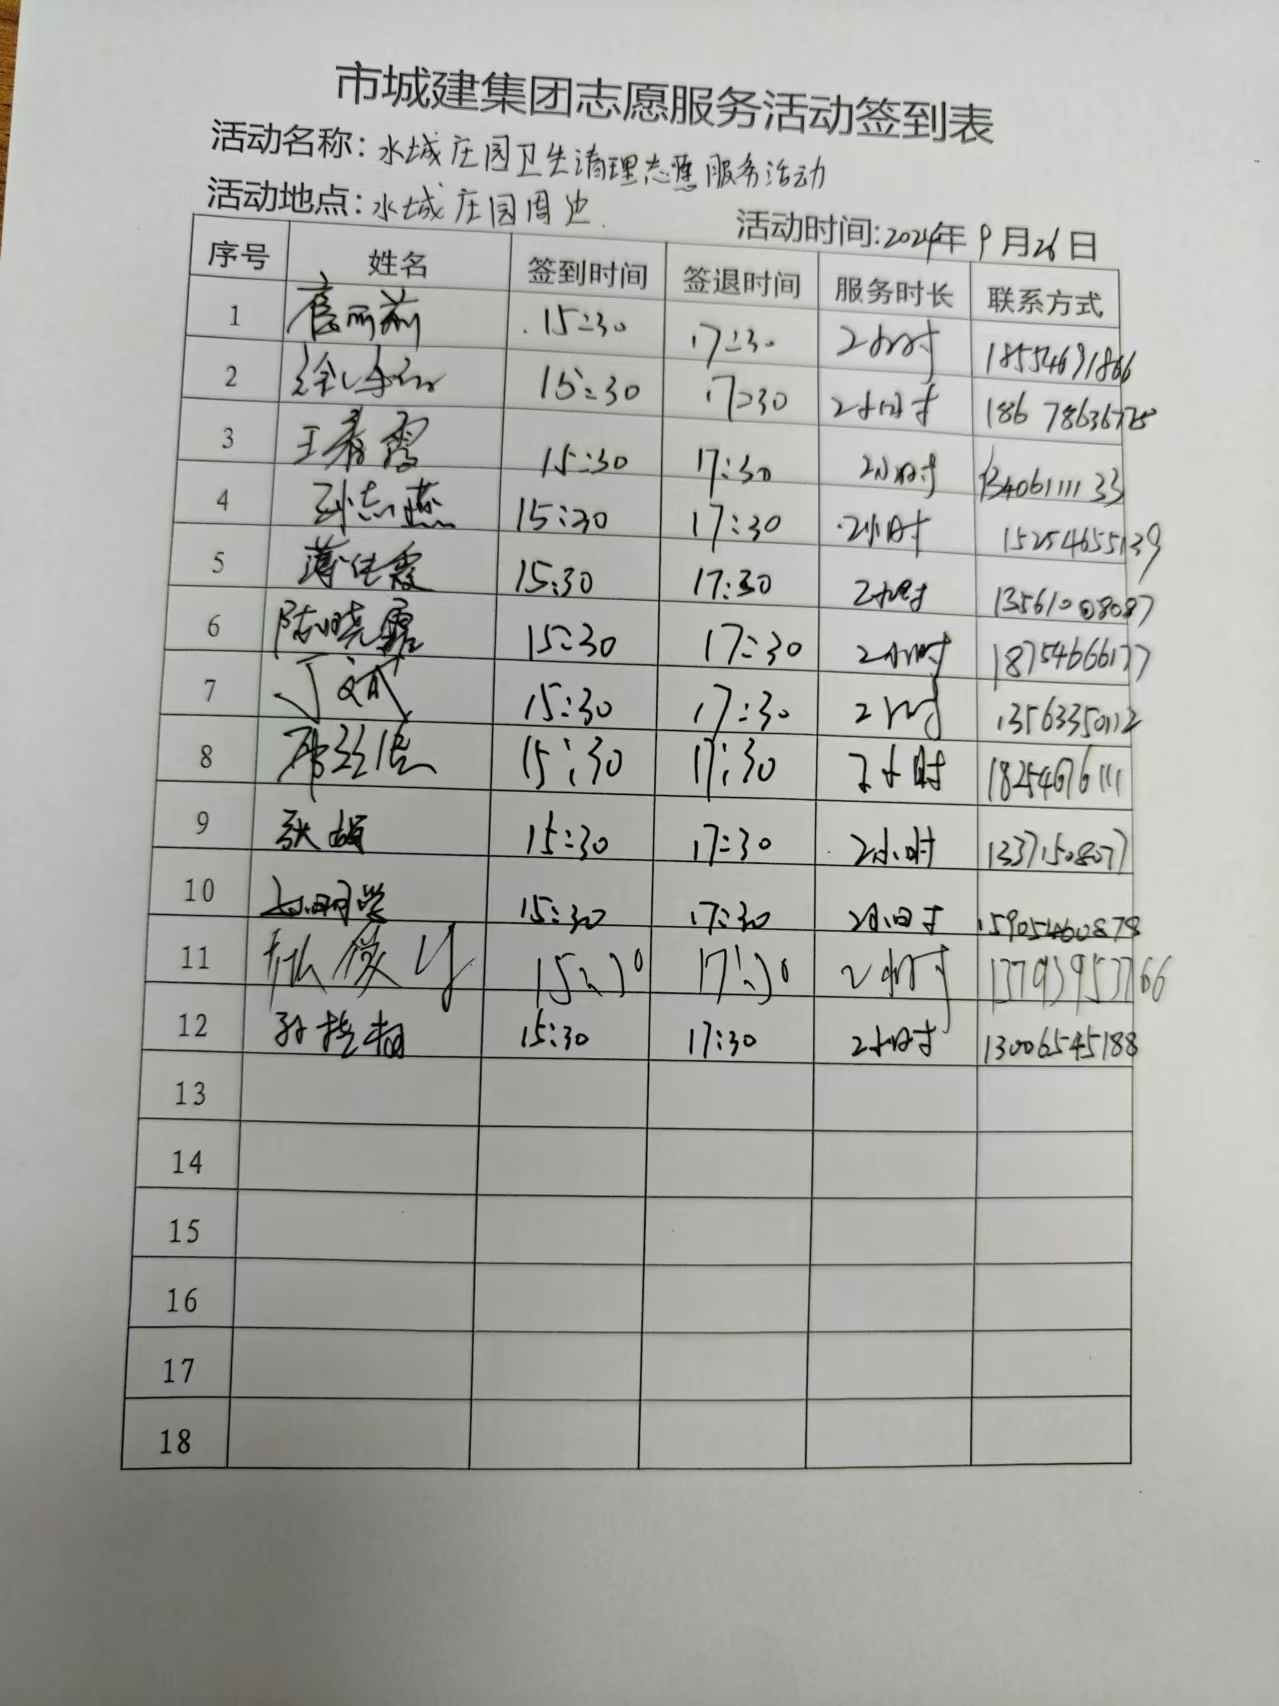 市城建集团志愿服务活动签到表
活动名称：水城庄园卫生清理志愿服务活动
活动地点：水城庄园周边
活动时间：2024年9月26日
序号 姓名 签到时间 签退时间 服务时长 联系方式
1 15:30 17:30 2小时 18554691866
2 15:30 17:30 2小时
3 王春霞 15:30 17:30 2小时 13406111133
4 孙志燕 15:30 17:30 2小时 15254655139
5 薄佳霞 15:30 17:30 2小时 13561008087
6 陆晓露 15:30 17:30 2小时 18754666177
7 丁斌 15:30 17:30 2小时 13563350112
8 15:30 17:30 2小时 18254676111
9 15:30 17:30 2小时 13371508077
10 15:30 17:30 2小时 15905460878
11 15:30 17:30 2小时 13793953766
12 15:30 17:30 2小时 13006545188
13
14
15
16
17
18